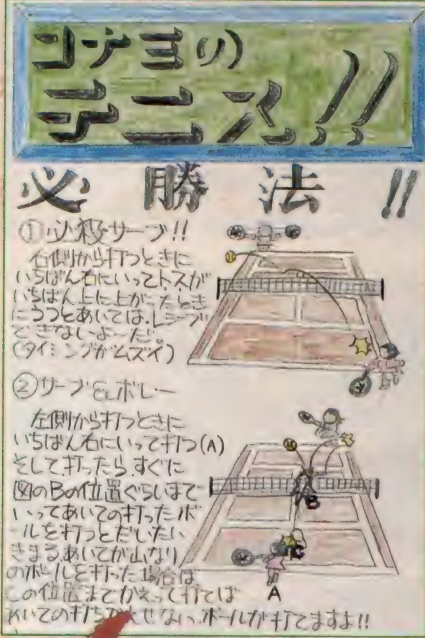 コナミの
テニス!!
必勝法!!
①必殺サーブ!!
右側から打つときに
いちばん右にいってトスが
いちばん上に上がったとき
にうつとあいては、レシーブ
できないよーだ。
(タイミングがムズイ)
②サーブ&ボレー
左側から打つときに
いちばん右にいって打つ(A)
そして打ったらすぐに
図のBの位置ぐらいまで
いってあいての打ったボ
ールを打つとだいたい
きまるあいてが山なり
のボールを打った場合は
Cの位置までかえって打てば
あいての打ちかえせないボールが打てますよ!!
B
C
A